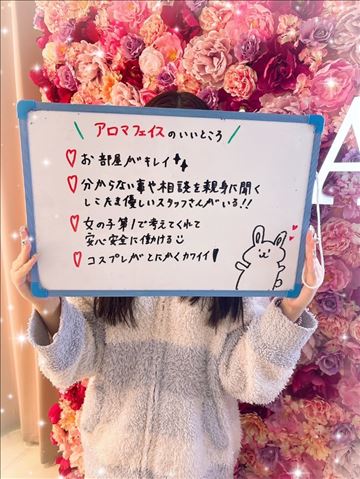 アロマフェイスのいいところ
♡お部屋がキレイ
♡分からない事や相談を親身に聞く
しこたま優しいスタッフさんがいる!!
♡女の子第1で考えてくれて
安心安全に働ける
♡コスプレがとにかくカワイイ!
A